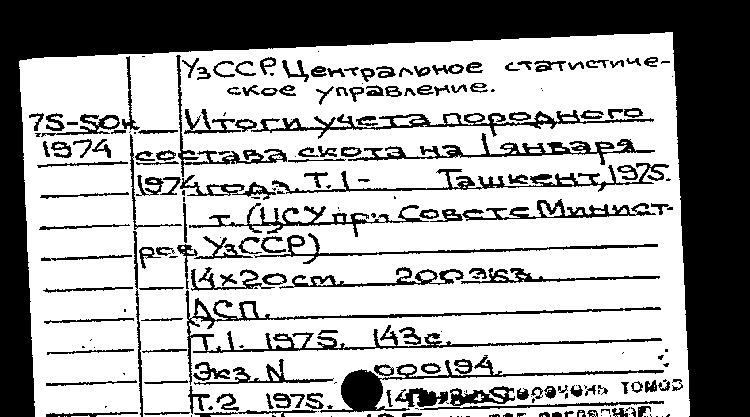 УзССР. Центральное статистиче-
ское управление.
75-50к Итоги учета породного
1974 состава скота на 1 января
1974 года. Т.1- Ташкент, 1975.
т. (ЦСУ при Совете Минист-
ров УзССР)
14×20 cm. 200 экз.
ДСП.
Т.1. 1975. 143 с.
Экз. N 000194.
Т.2 1975. 14 перечень томов